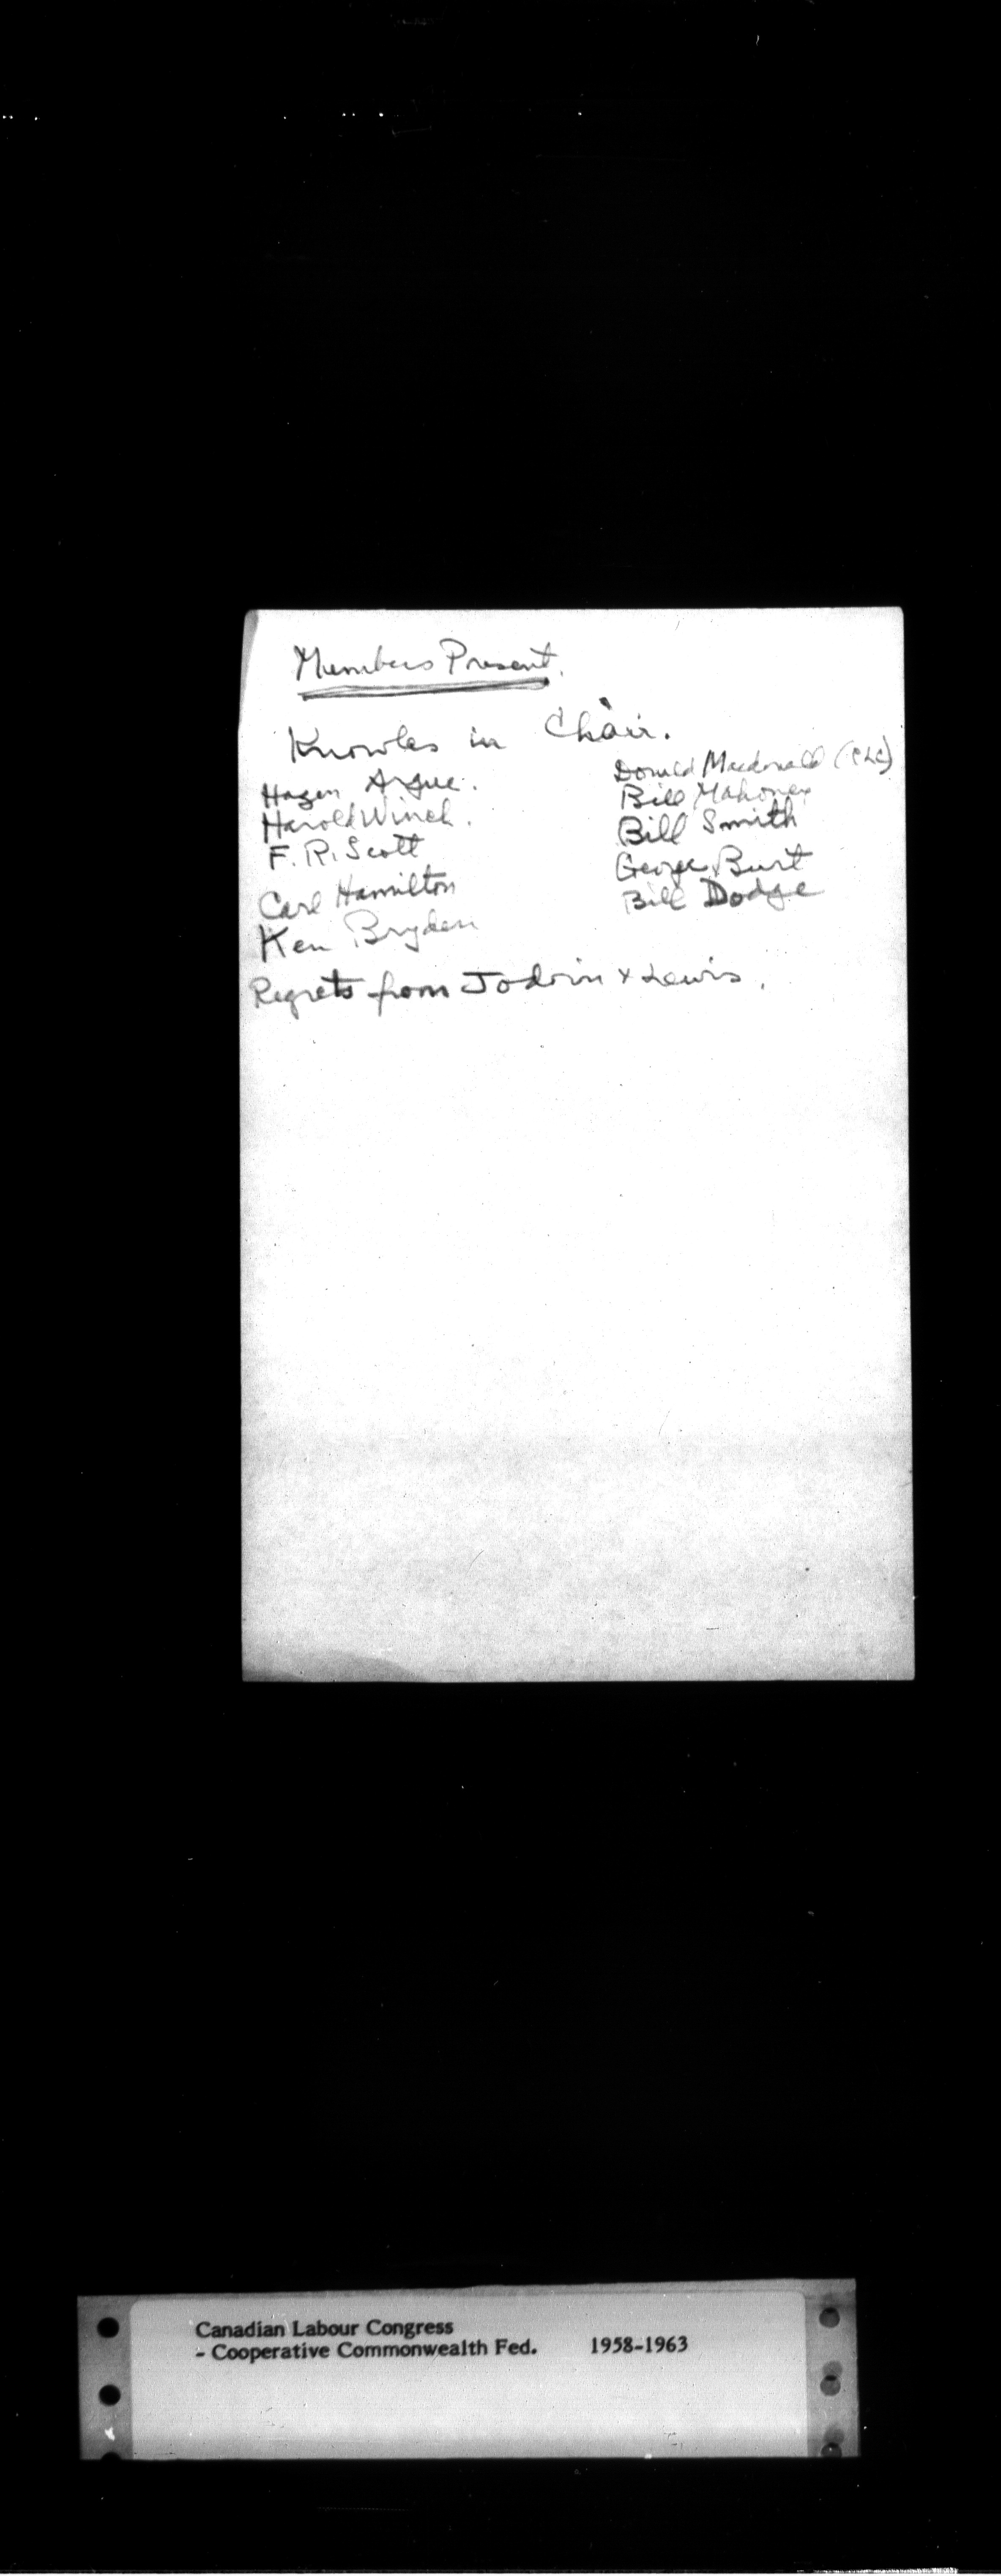 Members Present.
Knowles in Chair.
Hazen Argue.
Harold Winch.
F. R. Scott
Carl Hamilton
Ken Bryden
Donald Macdonald (CLC)
Bill Mahoney
Bill Smith
George Burt
Bill Dodge
Regrets from Jodoin & Lewis.
Canadian Labour Congress
- Cooperative Commonwealth Fed. 1958-1963